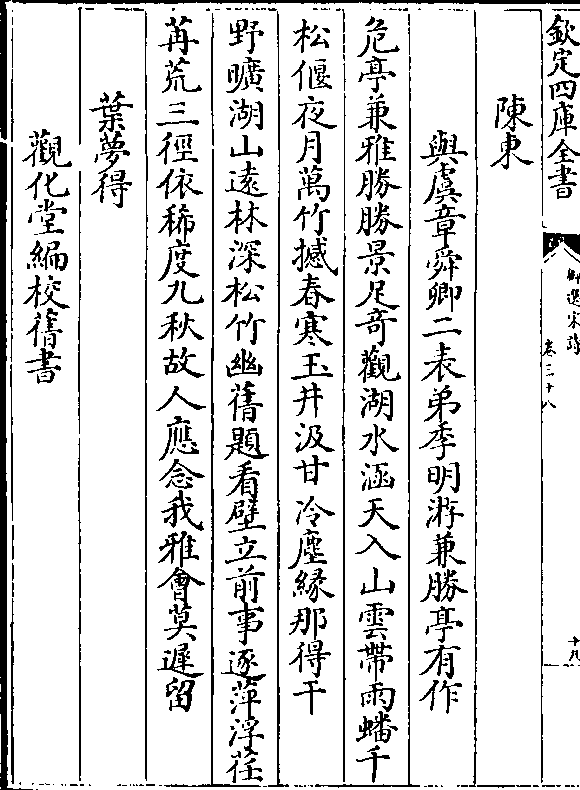 欽定四庫全書
御選宋詩
卷三十八
十八
陳東
與虞章舜卿二表弟季明游兼勝亭有作
危亭兼雅勝勝景足竒觀湖水涵天入山雲帶雨蟠千
松偃夜月萬竹撼春寒玉井汲甘冷塵縁那得干
野曠湖山逺林深松竹幽舊題看壁立前事逐萍浮荏
苒荒三徑依稀度九秋故人應念我雅㑹莫遲留
葉夢得
觀化堂編校舊書